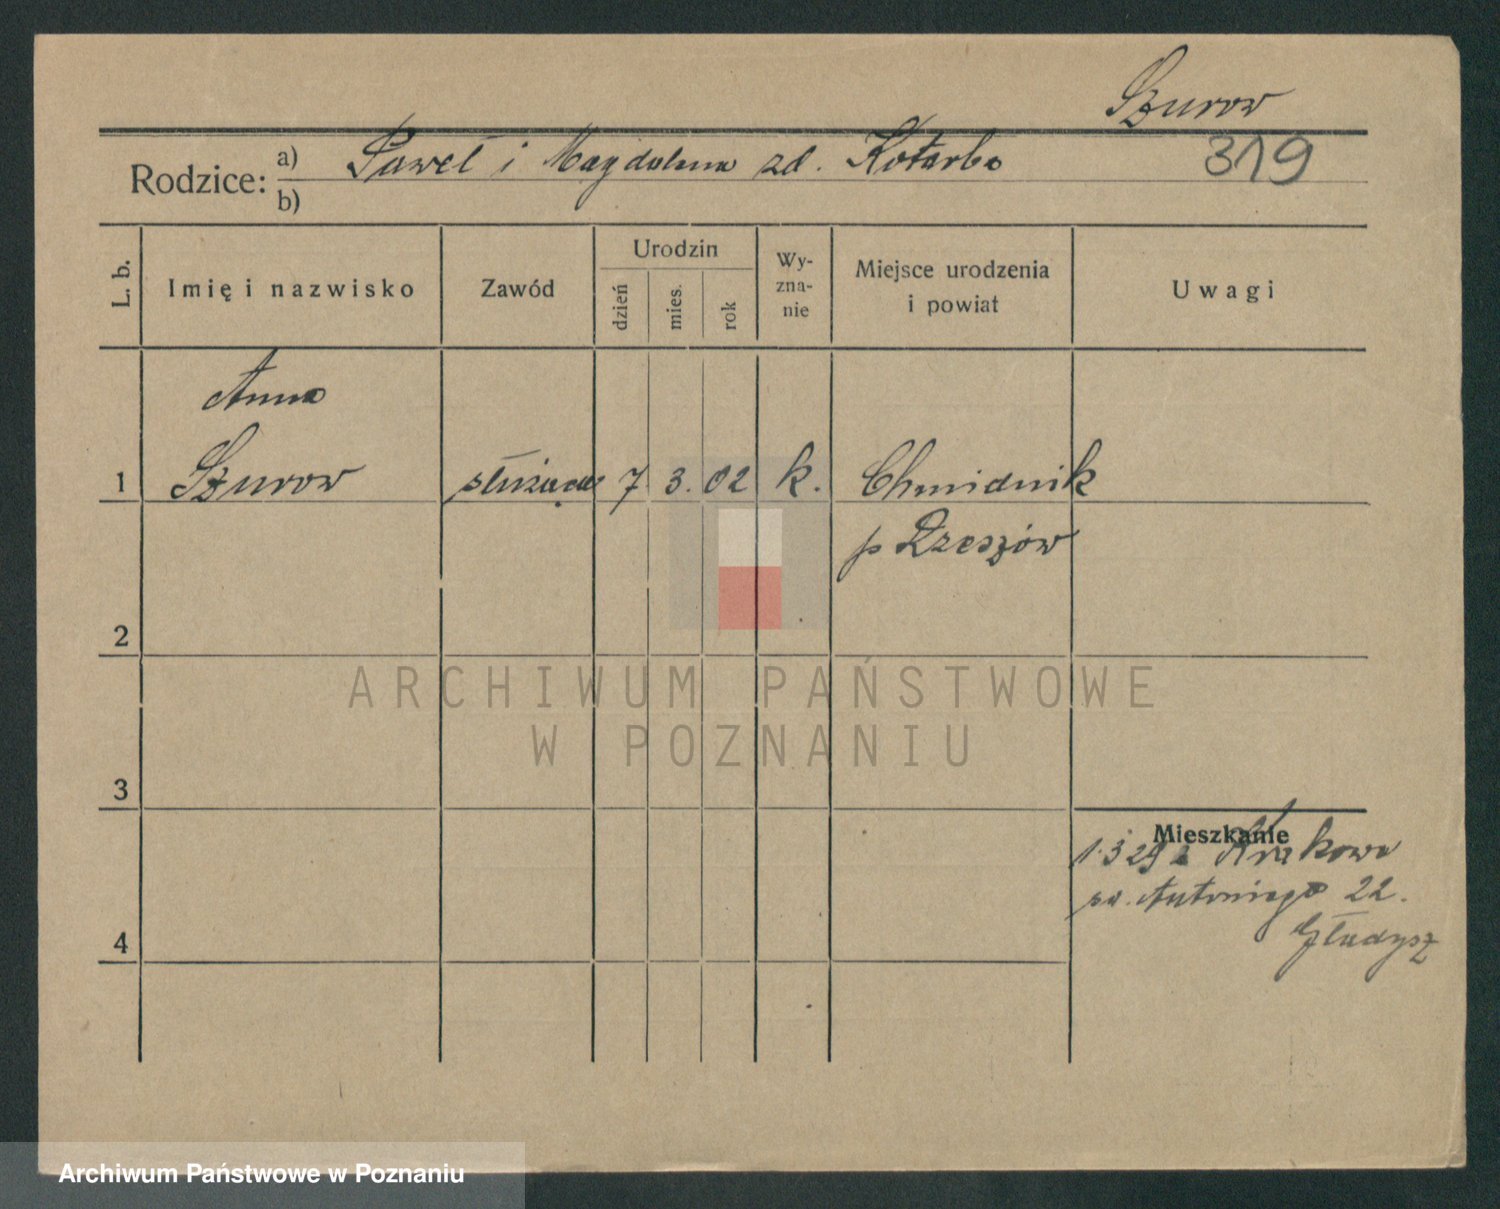 Szurow
Rodzice: a) Paweł i Magdalena zd. Kotarba 319
b)
L. b. Imię i nazwisko Zawód Urodzin dzień mies. rok Wy-zna-nie Miejsce urodzenia i powiat Uwagi
Anna
1 Szurow służąca 7 3. 02 k. Chmidnik
p Rzeszów
2
ARCHIWUM PAŃSTWOWE
W POZNANIU
3
Mieszkanie
1.3 29 z Krakowa
św. Antoniego 22.
4 Gładysz
Archiwum Państwowe w Poznaniu